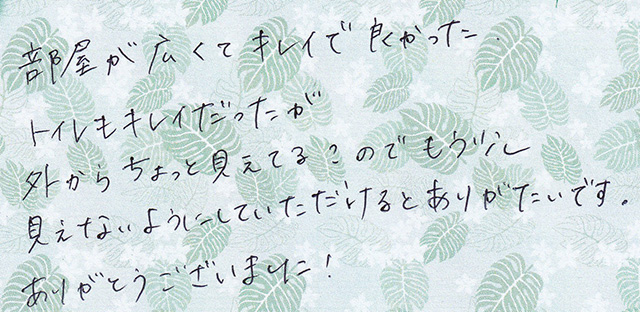 部屋が広くてキレイで良かった.
トイレもキレイだったが
外からちょっと見えてる?のでもう少し
見えないようにしていただけるとありがたいです。
ありがとうございました!